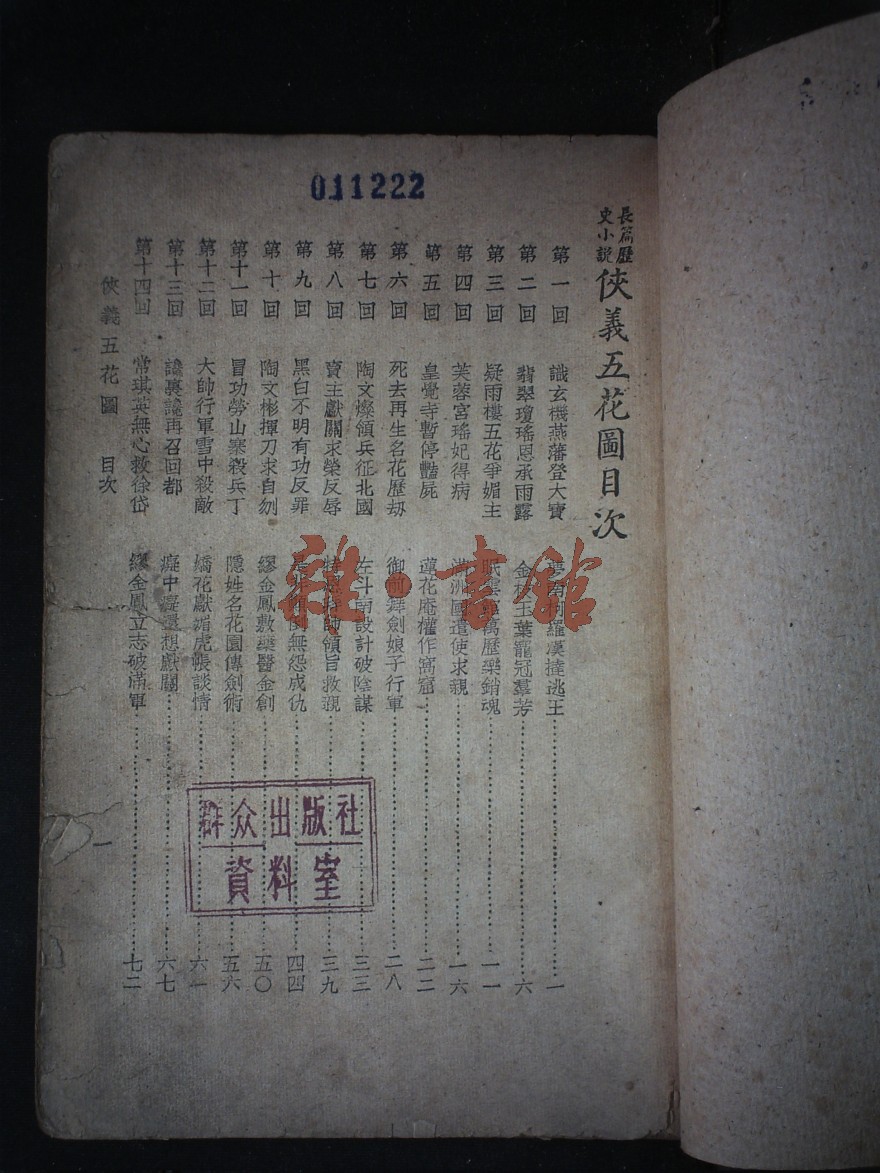 011222
長篇歷史小說 俠義五花圖目次
第一回 識玄機燕藩登大寶 羅漢撻逃王 一
第二回 翡翠瓊瑤恩承雨露 金枝玉葉寵冠羣芳 六
第三回 疑雨樓五花爭媚主 眠雲 萬歷樂銷魂 一一
第四回 芙蓉宮瑤妃得病 滿洲國遣使求親 一六
第五回 皇覺寺暫停豔屍 蓮花庵權作窩窟 二二
第六回 死去再生名花歷劫 御前舞劍娘子行軍 二八
第七回 陶文燦領兵征北國 左斗南設計破陰謀 三三
第八回 賣主獻關求榮反辱 帥領旨救親 三九
第九回 黑白不明有功反罪 無怨成仇 四四
第十回 陶文彬揮刀求自刎 繆金鳳敷藥醫金創 五〇
第十一回 冒功勞山寨殺兵丁 隱姓名花園傳劍術 五六
第十二回 大帥行軍雪中殺敵 嬌花獻媚虎帳談情 六一
第十三回 讒裏讒再召回都 癡中癡還想獻關 六七
第十四回 常琪英無心救徐岱 繆金鳳立志破滿軍 七二
俠義五花圖 目次
一
群众出版社
資料室
雜·書館